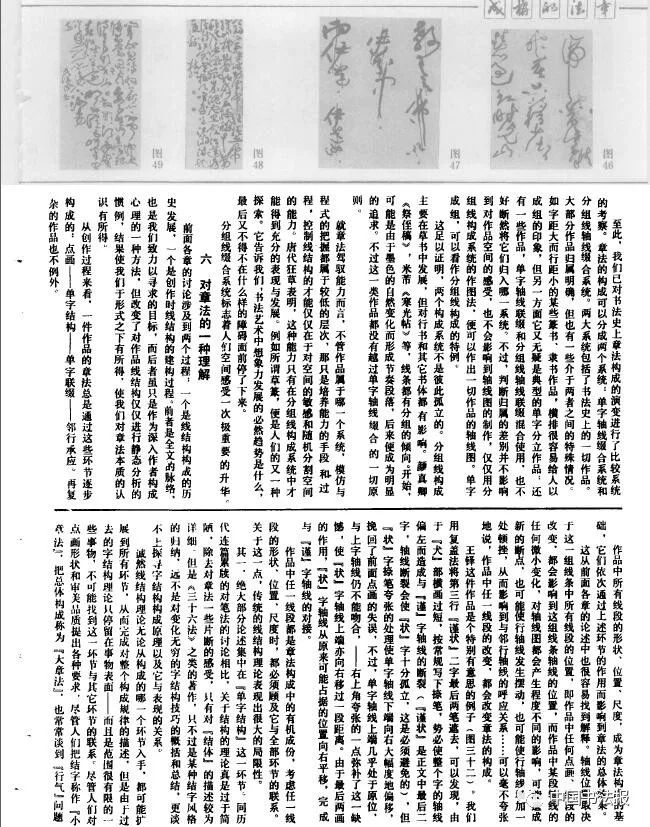 章法的构成
图46
图47
图48
图49
至此，我们已对书法史上章法构成的演变进行了比较系统
的考察。章法的构成可以分成两个系统：单字轴线缀合系统和
分组线轴线缀合系统。两大系统包括了书法史上的一切作品。
大部分作品归属明确，但也有一些介于两者之间的特殊情况。
如字距大而行距小的某些篆书、隶书作品，横排很容易给人以
成组的印象，但另一方面它又无疑是典型的单字分立作品；还
有一些作品，单字轴线联缀和分组线轴线联缀混合使用，也不
好断然将它们归入哪一系统。不过，判断归属的差别并不影响
到对作品空间的感受，也不会影响到轴线图的制作，仅仅用分
组线构成系统的作图法，便可以作出一切作品的轴线图。单字
成组，可以看作分组线构成的特例。
这足以证明，两个构成系统不是彼此孤立的。分组线构成
主要在草书中发展，但对行书和其它书体都有影响。颜真卿
《祭侄稿》，米芾《寒光帖》等，线条都有分组的倾向；开始，
可能是由于墨色的自然变化而形成节奏段落，后来便成为明显
的追求。不过这一类作品都没有越过单字轴线缀合的一切原
则。
就章法驾驭能力而言，不管作品属于哪个系统，模仿与
程式的把握都属于较低的层次，那只是培养能力的手段和过
程，控制线结构的才能仅仅在于对空间的敏感和随机分割空间
的能力。唐代狂草表明，这种能力只有在分组线构成系统中才
能得到充分的表现与发展。例如所谓草篆，便是人们的又一种
探索。它告诉我们：书法艺术中想象力发展的必然趋势是什么，
最后又不得不在什么样的障碍面前停了下来。
分组线缀合系统标志着人们空间感受一次极重要的升华。
六 对章法的一种理解
前面各章的讨论涉及到两个过程：一个是线结构构成的历
史发展，一个是创作时线结构的建构过程。前者是全文的脉络，
也是我们致力以寻求的目标，而后者虽只是作为深入作者构成
心理的一种方法，但改变了对作品线结构仅仅进行静态分析的
惯例，结果使我们于形式之下有所得，使我们对章法本质的认
识有所得。
从创作过程来看，一件作品的章法总是通过这些环节逐步
构成的：点画——单字结构——单字联缀——邻行承应。再复
杂的作品也不例外。
作品中所有线段的形状、位置、尺度，成为章法构成的基
础，它们依次通过上述环节的作用而影响到章法的总体效果。
这从前面各章的论述中也很容易找到解释，轴线位置取决
于这一组线条中所有线段的位置，即作品中任何点画、线段的
改变，都会影响到这组线条轴线的位置，而作品中某段轴线的
任何微小变化，对轴线图都会产生程度不同的影响，可能造成
新的断点，也可能使行轴线发生变动，也可能使行轴线增加一
处顿挫，从而影响到与邻行轴线的呼应关系……可以毫不夸张
地说，作品中任一线段的改变，都会改变章法的构成。
王铎这件作品是个特别有意思的例子（图三十二）。我们
用复盖法将第三行「谨状」二字最后两笔遮去，可以发现，由
于「犬」部横画过短，按常规写下捺笔，势必使整个字的轴线
偏左而造成与「谨」字轴线的断裂。「谨状」是正文中最后二
字，轴线断裂会使「状」字十分孤立，这是必须避免的，但
「状」字捺笔夸张的处理使单字轴线下端向右大幅度地偏移，
挽回了前面点画的失误。不过，单字轴线上端几乎处于原位，
与上字轴线仍不能吻合，——右上角夸张的一点弥补了这一缺
憾，使「状」字轴线上端亦向右移过一段距离。由于最后两画
的作用，「状」字轴线从原来可能占据的位置向右平移，完成
与「谨」字轴线的对接。
作品中任一线段都是章法构成中的有机成份，考虑任一线
段的形状、位置、尺度时，都必须顾及它与全部环节的联系。
关于这一点，传统的线结构理论表现出很大的局限性。
其一，绝大部分论述集中在「单字结构」这一环节。同历
代连篇累牍的对笔法的讨论相比，关于结构的理论真是过于简
陋，除去对章法一些片断的感受，只有对「结体」的描述较为
详细。但是《三十六法》之类的著作，只不过是某种结字风格
的归纳，远不是对变化无穷的字结构技巧的概括和总结，更谈
不上探寻字结构构成原理以及它与表现的关系。
诚然线结构理论无论从构成的哪一个环节入手，都可能扩
展到所有环节，从而完成对整个构成规律的描述，但是由于过
去的字结构理论只停留在事物表面——而且是范围很有限的一
些事物，不可能找到这一环节与其它环节的联系。尽管人们对
点画形状和审美品质提出各种要求，尽管人们把结字称作「小
章法」，把总体构成称为「大章法」，也常常谈到「行气」问题
中国书法报